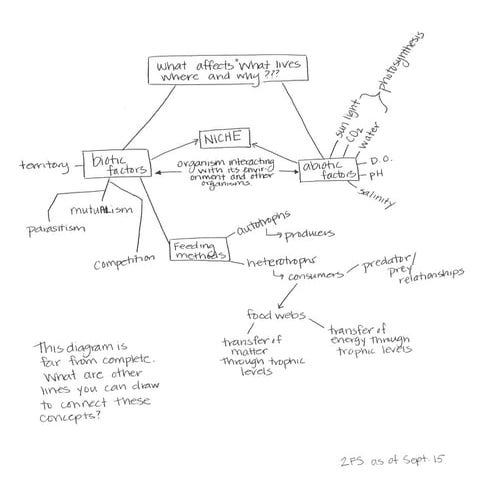 What affects "What lives
where and why???
photosynthesis
sun light
CO2
water
D.O.
pH
salinity
NICHE
territory
biotic
factors
organism interacting
with its envir-
onment and other
organisms.
abiotic
factors
mutualism
parasitism
competition
Feeding
methods
autotrophs
producers
heterotrophs
consumers
predator/
prey
relationships
food webs
transfer of
matter
through trophic
levels
transfer of
energy through
trophic levels
This diagram is
far from complete.
What are other
lines you can draw
to connect these
concepts?
2FS as of Sept. 15